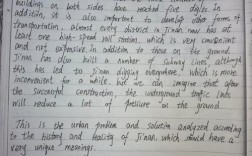 buildings on both sides have reached five digits. In
addition, it is also important to develop other forms of
transportation. almost every district in Jinan now has at
least one high-speed rail station, which is very convenient
and not expensive. In addition to those on the ground,
Jinan has also built a number of subway lines, although
this has led to Jinan digging everywhere, which is more
inconvenient for a while, but we can imagine that after
the successful construction, the underground traffic lines
will reduce a lot of pressure on the ground.
This is the urban problem and solution analyzed according
to the history and reality of Jinan, which should have a
very unique meanings.